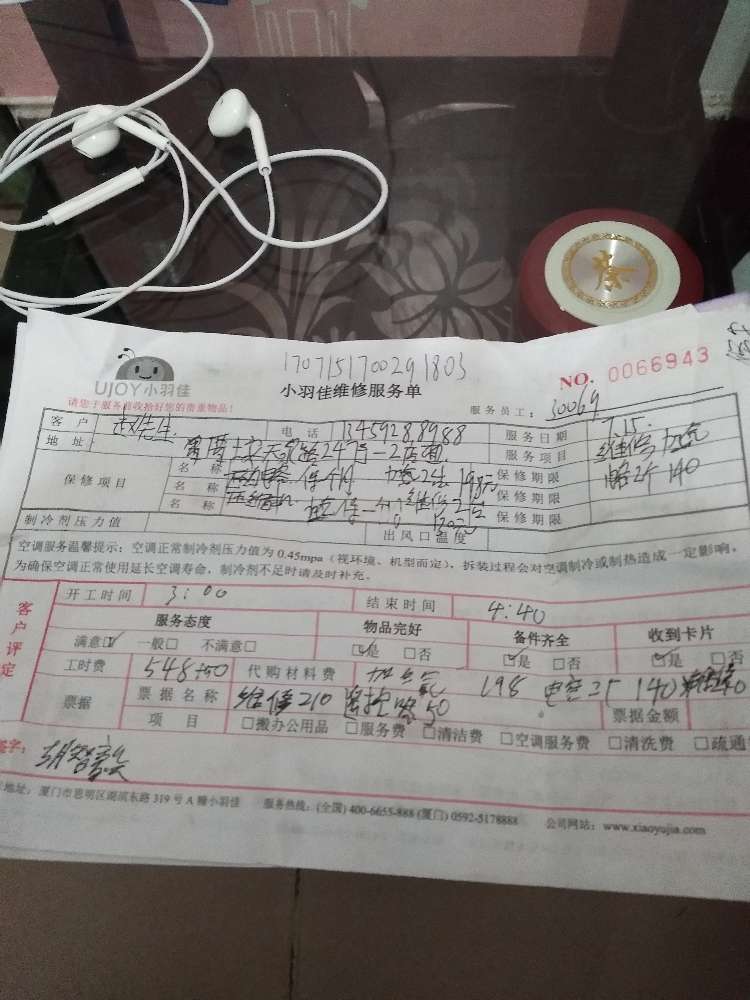 1707151700291803
UJOY小羽佳
小羽佳维修服务单
NO. 0066943
请您于服务前收拾好您的贵重物品!
服务员工: 30069
客 户 赵先生 电 话 13459288988 服务日期 7.15.
地 址: 247号-2店面 服务项目 维修 加氟
保修项目 名 称 保 加氟2台 198元 保修期限 电容2个 140
名 称 压缩机 保修期限
名 称 保修期限
制冷剂压力值 出风口温度
空调服务温馨提示:空调正常制冷剂压力值为 0.45mpa(视环境、机型而定),拆装过程会对空调制冷或制热造成一定影响。
为确保空调正常使用延长空调寿命,制冷剂不足时请及时补充。
客户评定
开工时间 3:00 结束时间 4:40
服务态度 物品完好 备件齐全 收到卡片
满意☑ 一般□ 不满意□ ☑是 □否 ☑是 □否 ☑是 □否
工时费 548+50 代购材料费 加氟 198 电容2个 140
票据 票据名称 维修210 50 票据金额
项 目 □搬办公用品 □服务费 □清洁费 □空调服务费 □清洗费 □疏通
签字:
地址:厦门市思明区湖滨东路 319 号 A 幢小羽佳 服务热线:(全国) 400-6655-888 (厦门) 0592-5178888 公司网站:www.xiaoyujia.com